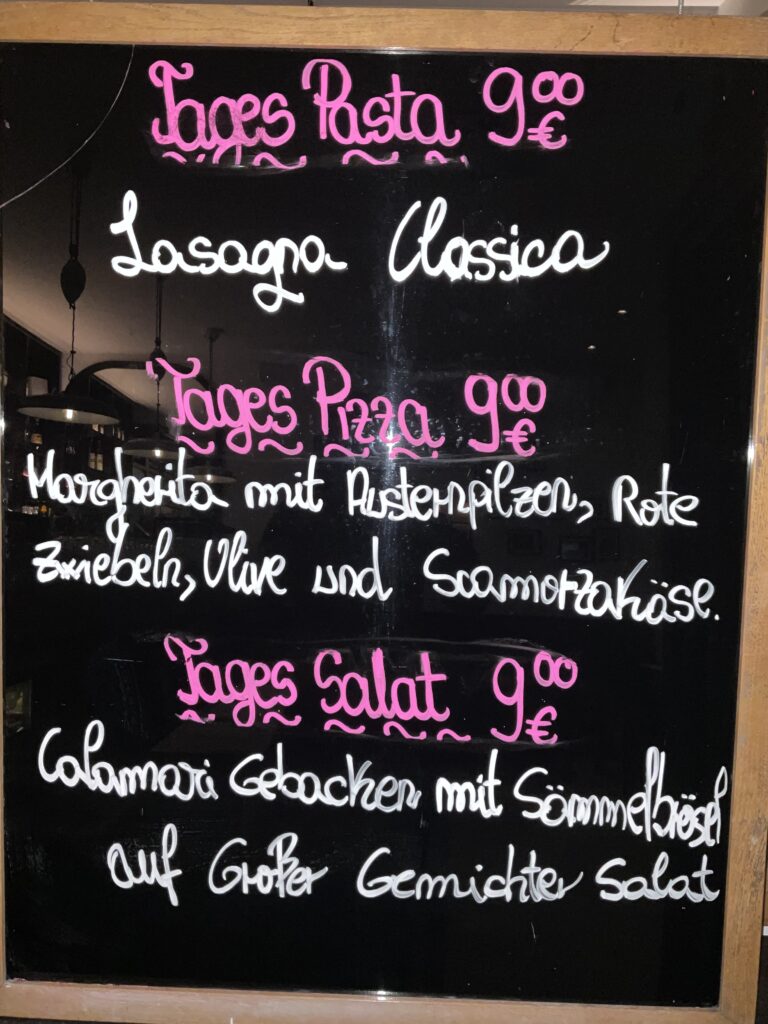 Tages Pasta 9,00 €
Lasagna Classica
Tages Pizza 9,00 €
Margherita mit Austernpilzen, Rote
Zwiebeln, Olive und Scamorzakäse.
Tages Salat 9,00 €
Calamari Gebacken mit Sömmelbrösel
auf Großer Gemichter Salat